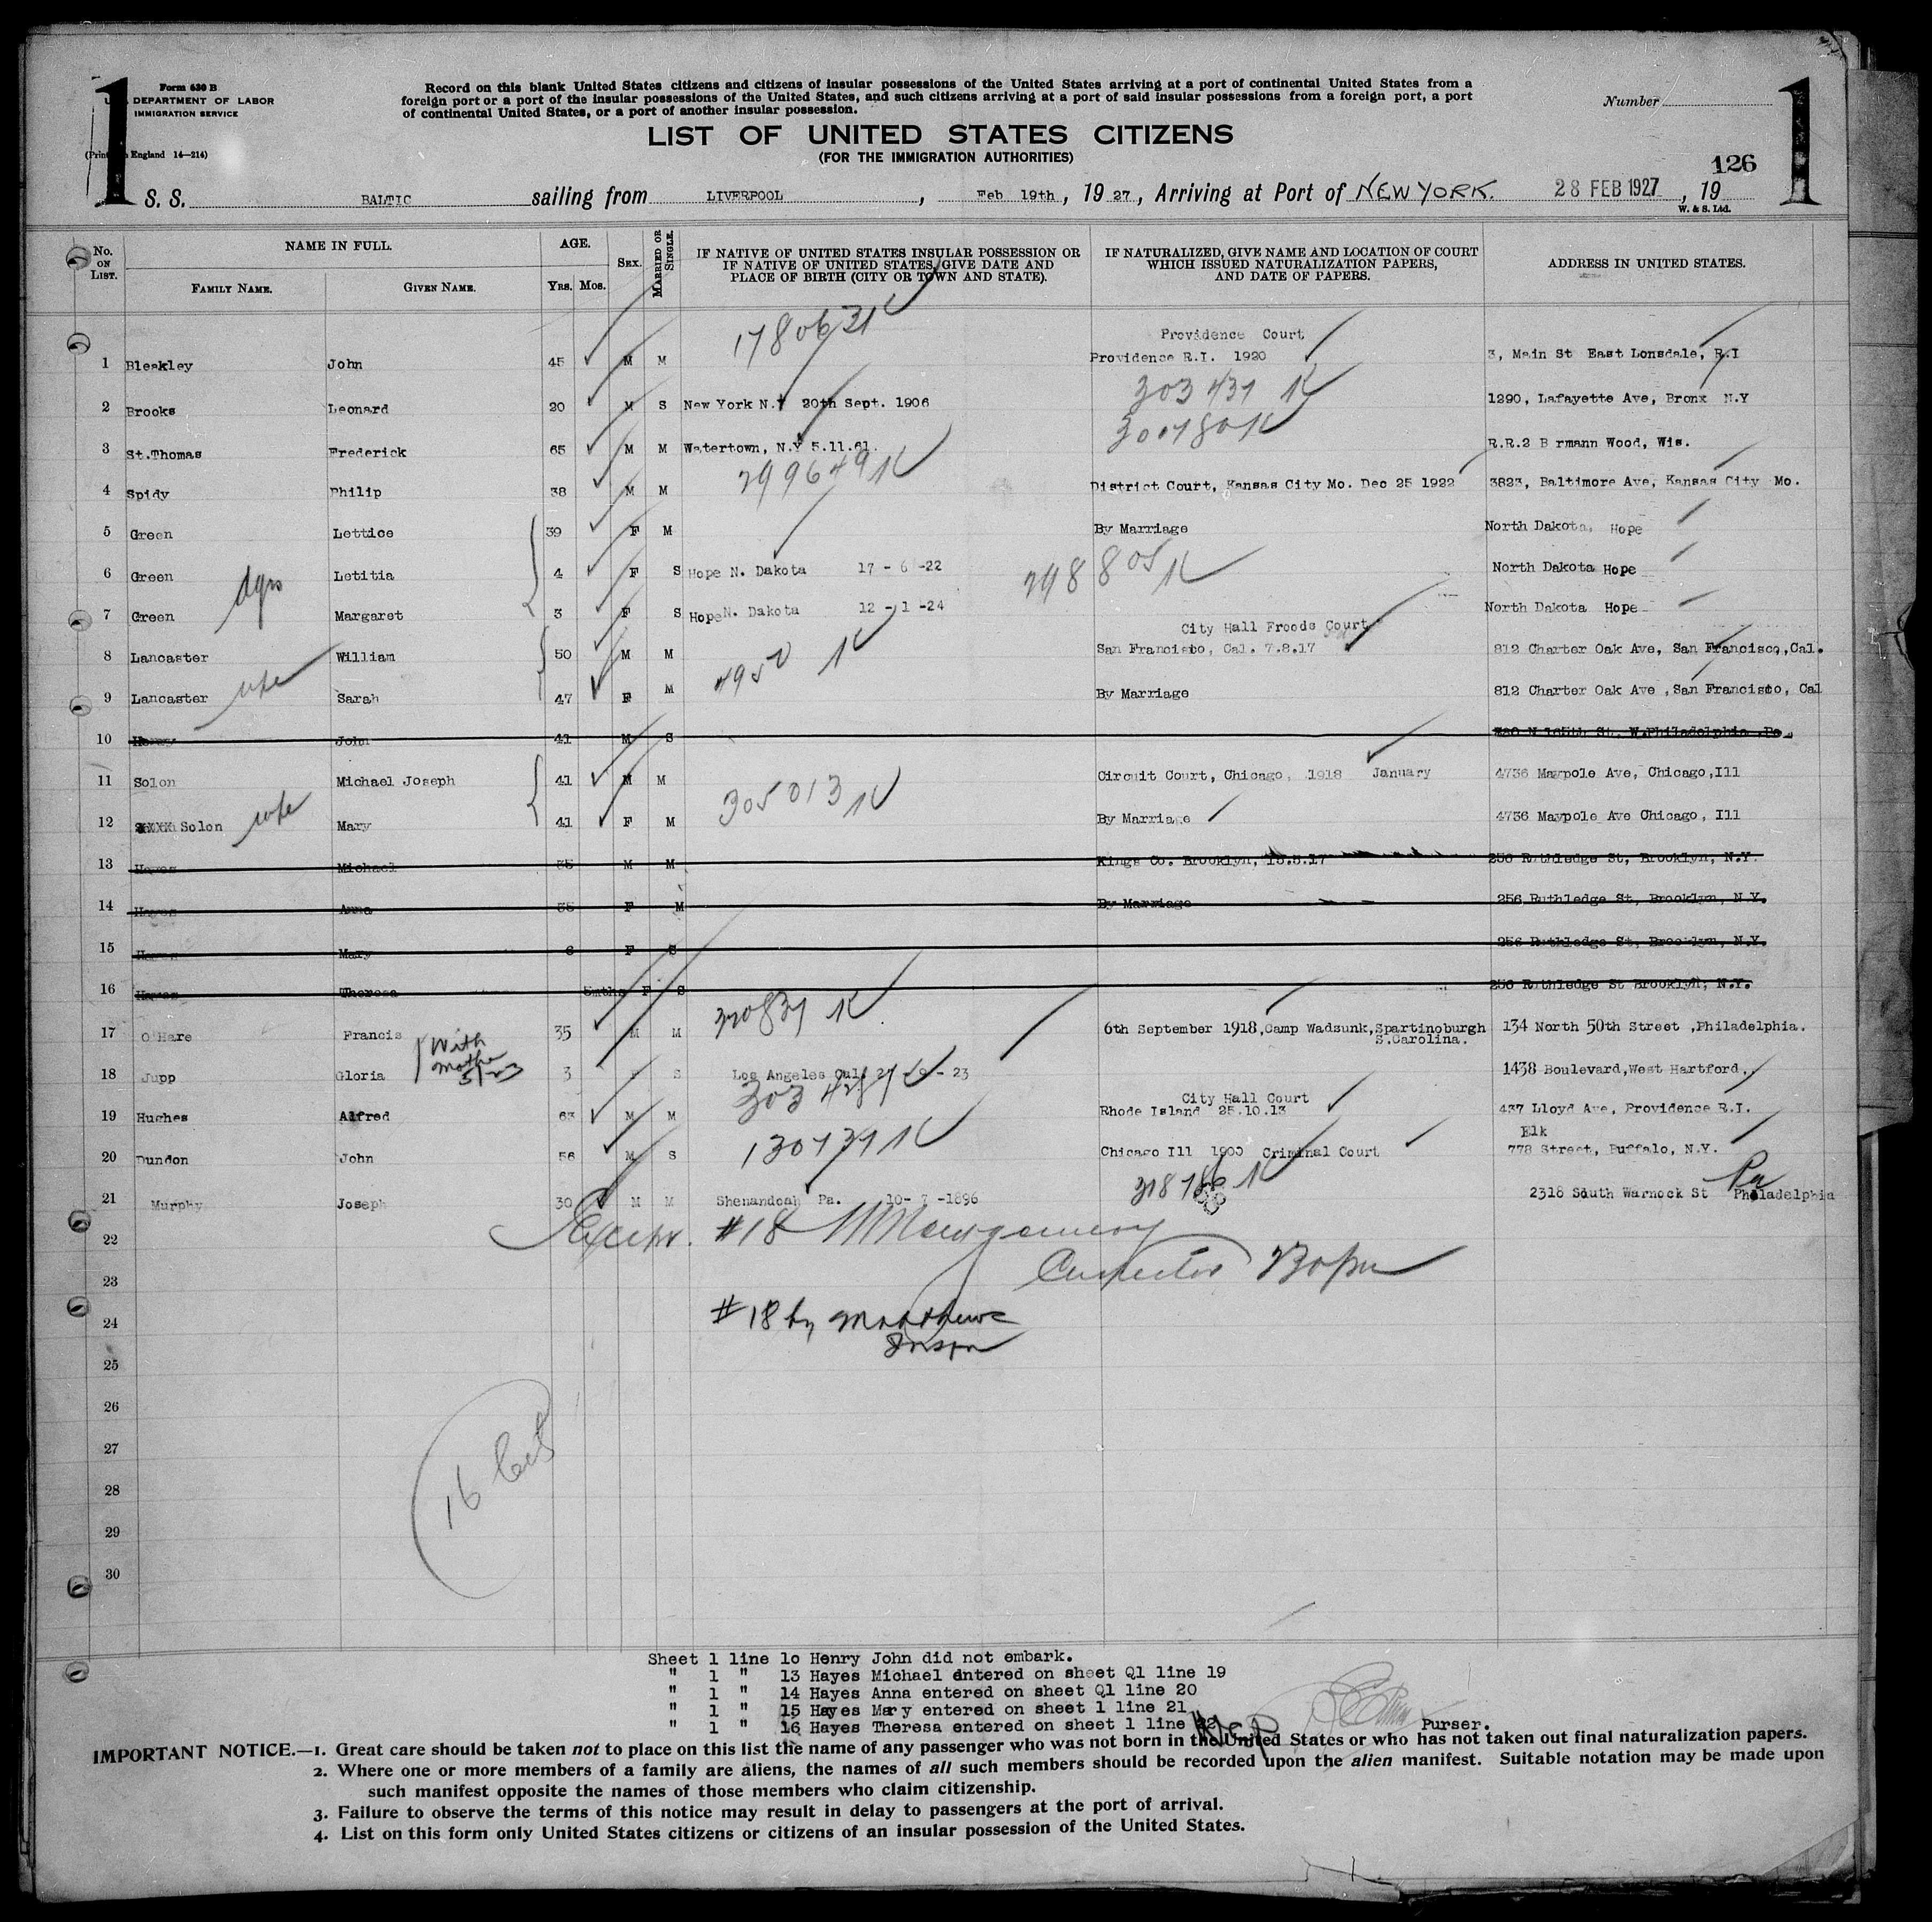 1
1
Form 630 B
DEPARTMENT OF LABOR
IMMIGRATION SERVICE
England 14—214)
Record on this blank United States citizens and citizens of insular possessions of the United States arriving at a port of continental United States from a
foreign port or a port of the insular possessions of the United States, and such citizens arriving at a port of said insular possessions from a foreign port, a port
of continental United States, or a port of another insular possession.
Number
LIST OF UNITED STATES CITIZENS
(FOR THE IMMIGRATION AUTHORITIES)
126
S. S. BALTIC sailing from LIVERPOOL, Feb 19th, 19 27, Arriving at Port of NEW YORK. 28 FEB 1927, 19
W. & S. Ltd.
No. ON LIST. NAME IN FULL. AGE. SEX. MARRIED OR SINGLE. IF NATIVE OF UNITED STATES INSULAR POSSESSION OR IF NATIVE OF UNITED STATES, GIVE DATE AND PLACE OF BIRTH (CITY OR TOWN AND STATE). IF NATURALIZED, GIVE NAME AND LOCATION OF COURT WHICH ISSUED NATURALIZATION PAPERS, AND DATE OF PAPERS. ADDRESS IN UNITED STATES.
FAMILY NAME. GIVEN NAME. Yrs. Mos.
178063
Providence Court
1 Bleakley John 45 M M Providence R.I. 1920 3, Main St East Lonsdale, R.I
303437
2 Brooks Leonard 20 M S New York N.Y 20th Sept. 1906 1290, Lafayette Ave, Bronx N.Y
3 St.Thomas Frederick 65 M M Watertown, N.Y 5.11.61. R.R.2 B rmann Wood, Wis.
299649
4 Spidy Philip 38 M M District Court, Kansas City Mo. Dec 25 1922 3823, Baltimore Ave, Kansas City Mo.
5 Green Lettice 39 F M By Marriage North Dakota, Hope
6 Green Letitia 4 F S Hope N. Dakota 17 - 6 -22 North Dakota Hope
298805
7 Green Margaret 3 F S Hope N. Dakota 12 - 1 -24 North Dakota Hope
City Hall Froods Court
8 Lancaster William 50 M M San Francisco, Cal. 7.8.17 812 Charter Oak Ave, San Francisco, Cal.
9 Lancaster wife Sarah 47 F M By Marriage 812 Charter Oak Ave ,San Francisco, Cal
10 Henry John 41 M S
11 Solon Michael Joseph 41 M M Circuit Court, Chicago, 1918 January 4736 Maypole Ave, Chicago,Ill
305013
12 Solon wife Mary 41 F M By Marriage 4736 Maypole Ave Chicago, Ill
13 Hayes Michael 35 M M Kings Co. Brooklyn, 256 Ruthledge St, Brooklyn, N.Y.
14 Hayes Anna 35 F M By Marriage 256 Ruthledge St, Brooklyn, N.Y.
15 Hayes Mary 6 F S 256 Ruthledge St, Brooklyn, N.Y.
16 Hayes Theresa 5mths F S 256 Ruthledge St Brooklyn, N.Y.
17 O'Hare Francis 35 M M 6th September 1918,Camp Wadsunk,Spartinoburgh S.Carolina. 134 North 50th Street ,Philadelphia.
With Mother
18 Jupp Gloria 3 S Los Angeles Cal. 23 1438 Boulevard,West Hartford.
City Hall Court
19 Hughes Alfred 63 M M Rhode Island 25.10.13 437 Lloyd Ave, Providence R.I.
Elk
20 Dundon John 56 M S Chicago Ill 1900 Criminal Court 778 Street, Buffalo, N.Y.
Pa
21 Murphy Joseph 30 M M Shenandoah Pa. 10- 7 -1896 2318 South Warnock St Philadelphia
22 #18 Montgomery
23
#18 by Matthews
24
Inspr
25
26
27
16
28
29
30
Sheet 1 line 10 Henry John did not embark.
" 1 " 13 Hayes Michael entered on sheet Q1 line 19
" 1 " 14 Hayes Anna entered on sheet Q1 line 20
" 1 " 15 Hayes Mary entered on sheet 1 line 21
" 1 " 16 Hayes Theresa entered on sheet 1 line 22
Purser.
IMPORTANT NOTICE.—1. Great care should be taken not to place on this list the name of any passenger who was not born in the United States or who has not taken out final naturalization papers.
2. Where one or more members of a family are aliens, the names of all such members should be recorded upon the alien manifest. Suitable notation may be made upon
such manifest opposite the names of those members who claim citizenship.
3. Failure to observe the terms of this notice may result in delay to passengers at the port of arrival.
4. List on this form only United States citizens or citizens of an insular possession of the United States.